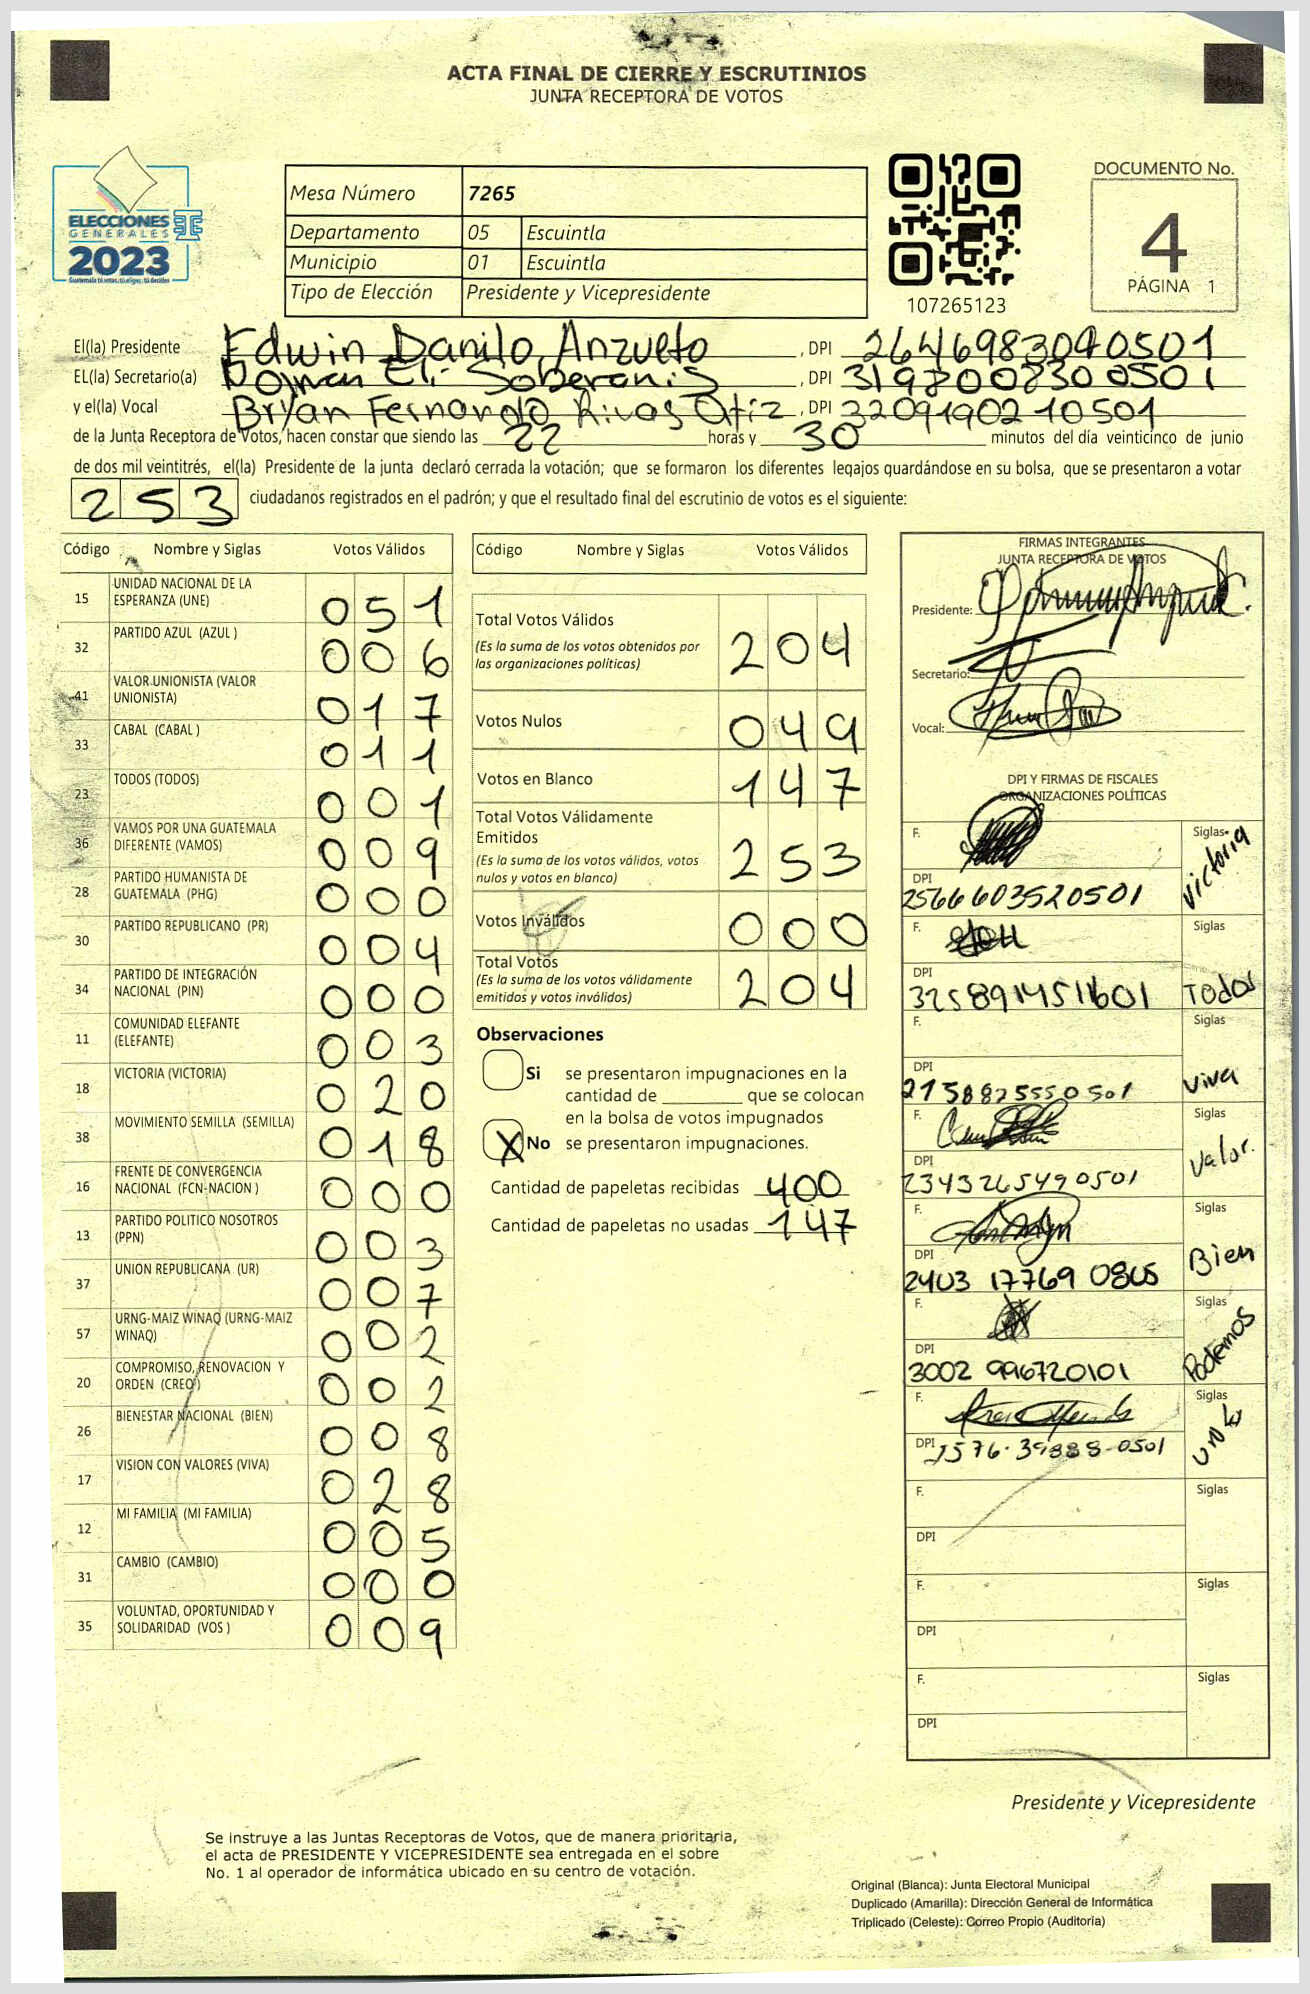 ACTA FINAL DE CIERRE Y ESCRUTINIOS
JUNTA RECEPTORA DE VOTOS
ELECCIONES
GENERALES
2023
Guatemala tú votas, tú eliges, tú decides
Mesa Número 7265
Departamento 05 Escuintla
Municipio 01 Escuintla
Tipo de Elección Presidente y Vicepresidente
107265123
DOCUMENTO No.
4
PÁGINA 1
El(la) Presidente Edwin Danilo Anzueto , DPI 2646983040501
EL(la) Secretario(a) Roman Eli Soberanis , DPI 3198008300501
y el(la) Vocal Bryan Fernando Rivas Ortiz , DPI 3209190210501
de la Junta Receptora de Votos, hacen constar que siendo las 22 horas y 30 minutos del día veinticinco de junio
de dos mil veintitrés, el(la) Presidente de la junta declaró cerrada la votación; que se formaron los diferentes legajos guardándose en su bolsa, que se presentaron a votar
253 ciudadanos registrados en el padrón; y que el resultado final del escrutinio de votos es el siguiente:
Código Nombre y Siglas Votos Válidos
15 UNIDAD NACIONAL DE LA ESPERANZA (UNE) 051
32 PARTIDO AZUL (AZUL ) 006
41 VALOR UNIONISTA (VALOR UNIONISTA) 017
33 CABAL (CABAL ) 011
23 TODOS (TODOS) 001
36 VAMOS POR UNA GUATEMALA DIFERENTE (VAMOS) 009
28 PARTIDO HUMANISTA DE GUATEMALA (PHG) 000
30 PARTIDO REPUBLICANO (PR) 004
34 PARTIDO DE INTEGRACIÓN NACIONAL (PIN) 000
11 COMUNIDAD ELEFANTE (ELEFANTE) 003
18 VICTORIA (VICTORIA) 020
38 MOVIMIENTO SEMILLA (SEMILLA) 018
16 FRENTE DE CONVERGENCIA NACIONAL (FCN-NACION ) 000
13 PARTIDO POLITICO NOSOTROS (PPN) 003
37 UNION REPUBLICANA (UR) 007
57 URNG-MAIZ WINAQ (URNG-MAIZ WINAQ) 002
20 COMPROMISO, RENOVACION Y ORDEN (CREO ) 002
26 BIENESTAR NACIONAL (BIEN) 008
17 VISION CON VALORES (VIVA) 028
12 MI FAMILIA (MI FAMILIA) 005
31 CAMBIO (CAMBIO) 000
35 VOLUNTAD, OPORTUNIDAD Y SOLIDARIDAD (VOS ) 009
Código Nombre y Siglas Votos Válidos
Total Votos Válidos 204
(Es la suma de los votos obtenidos por
las organizaciones políticas)
Votos Nulos 049
Votos en Blanco 147
Total Votos Válidamente
Emitidos 253
(Es la suma de los votos válidos, votos
nulos y votos en blanco)
Votos Inválidos 000
Total Votos 204
(Es la suma de los votos válidamente
emitidos y votos inválidos)
Observaciones
Si se presentaron impugnaciones en la
cantidad de ________ que se colocan
en la bolsa de votos impugnados
X No se presentaron impugnaciones.
Cantidad de papeletas recibidas 400
Cantidad de papeletas no usadas 147
FIRMAS INTEGRANTES
JUNTA RECEPTORA DE VOTOS
Presidente:
Secretario:
Vocal:
DPI Y FIRMAS DE FISCALES
ORGANIZACIONES POLÍTICAS
F. Siglas Victoria
DPI 2566603520501
F. Siglas Todos
DPI 3258914511601
F. Siglas Viva
DPI 2758825550501
F. Siglas Valor.
DPI 2343265490501
F. Siglas Bien
DPI 2403 17769 0805
F. Siglas Podemos
DPI 3002 996720101
F. Siglas UNE
DPI 1576·39888-0501
F. Siglas
DPI
F. Siglas
DPI
F. Siglas
DPI
Presidente y Vicepresidente
Se instruye a las Juntas Receptoras de Votos, que de manera prioritaria,
el acta de PRESIDENTE Y VICEPRESIDENTE sea entregada en el sobre
No. 1 al operador de informática ubicado en su centro de votación.
Original (Blanca): Junta Electoral Municipal
Duplicado (Amarilla): Dirección General de Informática
Triplicado (Celeste): Correo Propio (Auditoría)